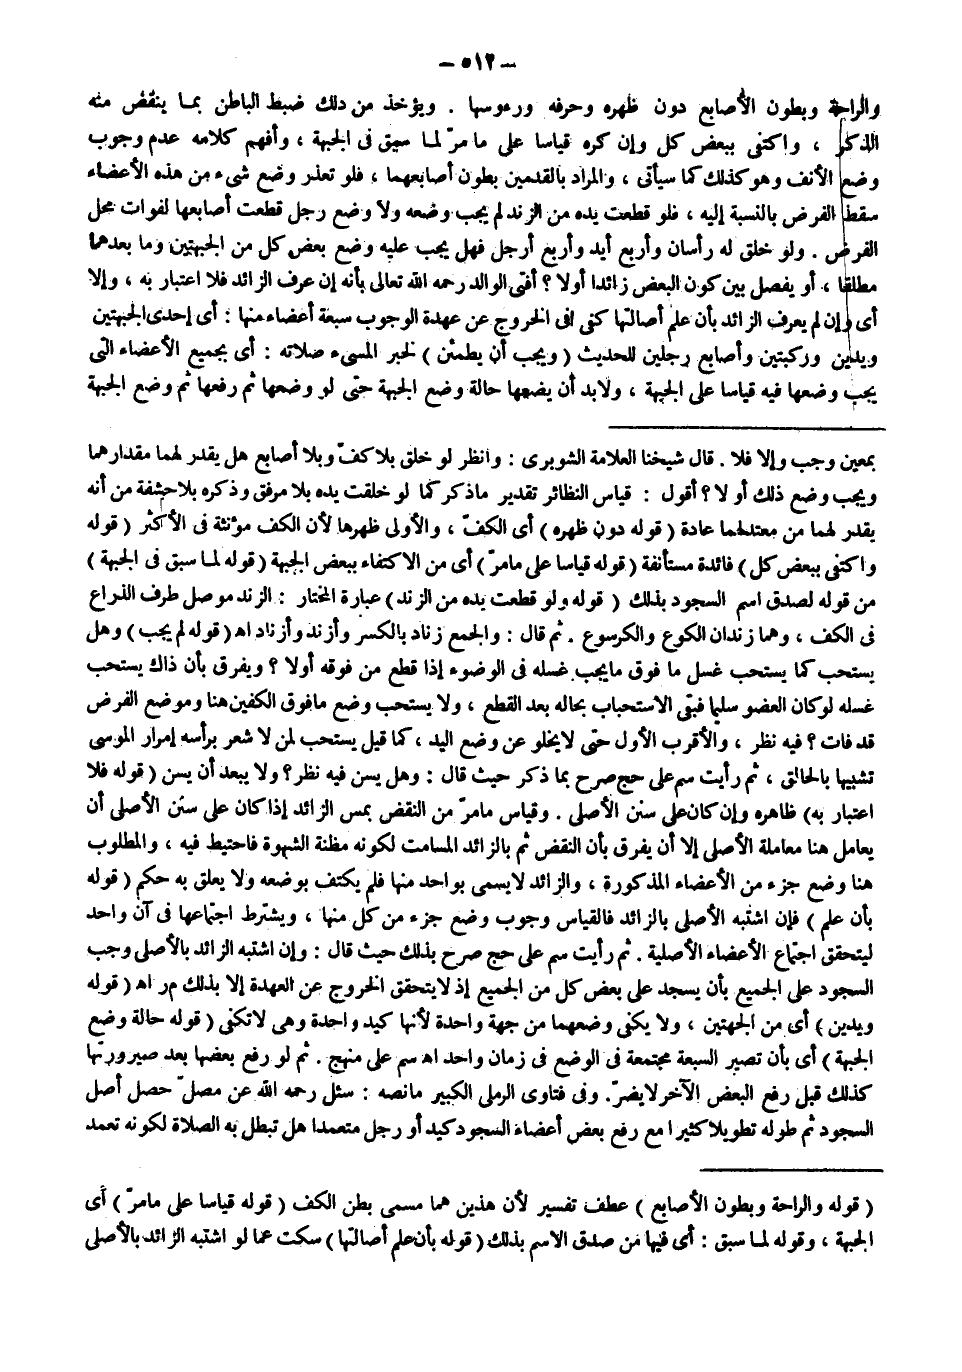 — ٥١٢ —
والراحة وبطون الأصابع دون ظهره وحرفه ورءوسها . ويؤخذ من ذلك ضبط الباطن بما ينقض منه
الذكر ، واكتفى ببعض كل وإن كره قياسا على مامرّ لما سبق فى الجبهة ، وأفهم كلامه عدم وجوب
وضع الأنف وهو كذلك كما سيأتى ، والمراد بالقدمين بطون أصابعهما ، فلو تعذر وضع شىء من هذه الأعضاء
سقط الفرض بالنسبة إليه ، فلو قطعت يده من الزند لم يجب وضعه ولا وضع رجل قطعت أصابعها لفوات محل
الفرض . ولو خلق له رأسان وأربع أيد وأربع أرجل فهل يجب عليه وضع بعض كل من الجبهتين وما بعدهما
مطلقا ، أو يفصل بين كون البعض زائدا أولا ؟ أفتى الوالد رحمه الله تعالى بأنه إن عرف الزائد فلا اعتبار به ، وإلا
أى وإن لم يعرف الزائد بأن علم أصالتها كفى فى الخروج عن عهدة الوجوب سبعة أعضاء منها : أى إحدى الجبهتين
ويدين وركبتين وأصابع رجلين للحديث ( ويجب أن يطمئن ) لخبر المسىء صلاته : أى بجميع الأعضاء التى
يجب وضعها فيه قياسا على الجبهة ، ولابد أن يضعها حالة وضع الجبهة حتى لو وضعها ثم رفعها ثم وضع الجبهة
بمعين وجب وإلا فلا . قال شيخنا العلامة الشوبرى : وانظر لو خلق بلا كفّ وبلا أصابع هل يقدر لهما مقدارهما
ويجب وضع ذلك أو لا ؟ أقول : قياس النظائر تقدير ماذكر كما لو خلقت يده بلا مرفق وذكره بلا حشفة من أنه
يقدر لهما من معتدلهما عادة ( قوله دون ظهره ) أى الكفّ ، والأولى ظهرها لأن الكف مؤنثة فى الأكثر ( قوله
واكتفى ببعض كل ) فائدة مستأنفة ( قوله قياسا على مامرّ ) أى من الاكتفاء ببعض الجبهة ( قوله لما سبق فى الجبهة )
من قوله لصدق اسم السجود بذلك ( قوله ولو قطعت يده من الزند ) عبارة المختار : الزند موصل طرف الذراع
فى الكف ، وهما زندان الكوع والكرسوع . ثم قال : والجمع زناد بالكسر وأزند وأزناد اه ( قوله لم يجب ) وهل
يستحب كما يستحب غسل ما فوق مايجب غسله فى الوضوء إذا قطع من فوقه أولا ؟ ويفرق بأن ذاك يستحب
غسله لو كان العضو سليما فبقى الاستحباب بحاله بعد القطع ، ولا يستحب وضع مافوق الكفين هنا وموضع الفرض
قد فات ؟ فيه نظر ، والأقرب الأول حتى لايخلو عن وضع اليد ، كما قيل يستحب لمن لا شعر برأسه إمرار الموسى
تشبيها بالحالق ، ثم رأيت سم على حج صرح بما ذكر حيث قال : وهل يسن فيه نظر ؟ ولا يبعد أن يسن ( قوله فلا
اعتبار به) ظاهره وإن كان على سنن الأصلى . وقياس مامرّ من النقض بمس الزائد إذا كان على سنن الأصلى أن
يعامل هنا معاملة الأصلى إلا أن يفرق بأن النقض ثم بالزائد المسامت لكونه مظنة الشهوة فاحتيط فيه ، والمطلوب
هنا وضع جزء من الأعضاء المذكورة ، والزائد لايسمى بواحد منها فلم يكتف بوضعه ولا يعلق به حكم ( قوله
بأن علم ) فإن اشتبه الأصلى بالزائد فالقياس وجوب وضع جزء من كل منها ، ويشترط اجتماعها فى آن واحد
ليتحقق اجتماع الأعضاء الأصلية . ثم رأيت سم على حج صرح بذلك حيث قال : وإن اشتبه الزائد بالأصلى وجب
السجود على الجميع بأن يسجد على بعض كل من الجميع إذ لايتحقق الخروج عن العهدة إلا بذلك م ر اه ( قوله
ويدين ) أى من الجهتين ، ولا يكفى وضعهما من جهة واحدة لأنها كيد واحدة وهى لاتكفى ( قوله حالة وضع
الجبهة ) أى بأن تصير السبعة مجتمعة فى الوضع فى زمان واحد اه سم على منهج . ثم لو رفع بعضها بعد صيرورتها
كذلك قبل رفع البعض الآخر لايضرّ. وفى فتاوى الرملى الكبير مانصه : سئل رحمه الله عن مصلّ حصل أصل
السجود ثم طوله تطويلا كثيرا مع رفع بعض أعضاء السجود كيد أو رجل متعمدا هل تبطل به الصلاة لكونه تعمد
( قوله والراحة وبطون الأصابع ) عطف تفسير لأن هذين هما مسمى بطن الكف ( قوله قياسا على مامرّ ) أى
الجبهة ، وقوله لما سبق : أى فيها من صدق الاسم بذلك ( قوله بأن علم أصالتها ) سكت عما لو اشتبه الزائد بالأصلى